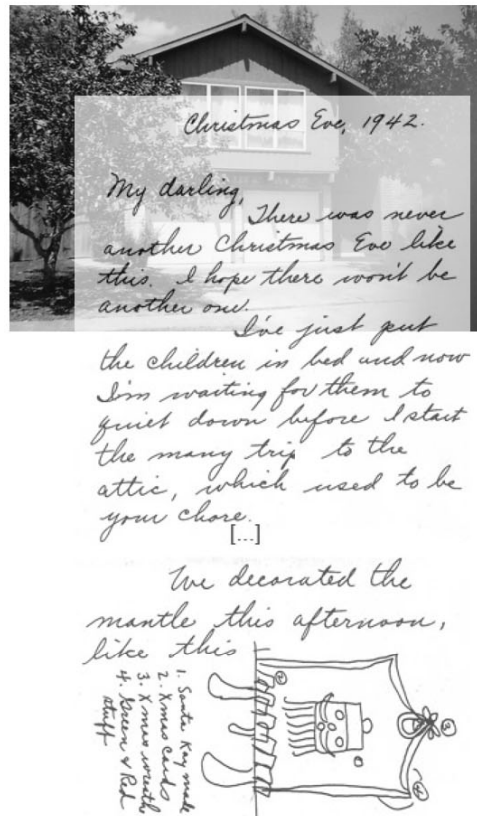 Christmas Eve, 1942.
My darling,
There was never
another Christmas Eve like
this. I hope there won't be
another one.
I've just put
the children in bed and now
I'm waiting for them to
quiet down before I start
the many trip to the
attic, which used to be
your chore.
[...]
We decorated the
mantle this afternoon,
like this
1. Santa Kay made
2. Xmas Cards
3. Xmas wreath
4. Green & Red
stuff
2
3
1
4